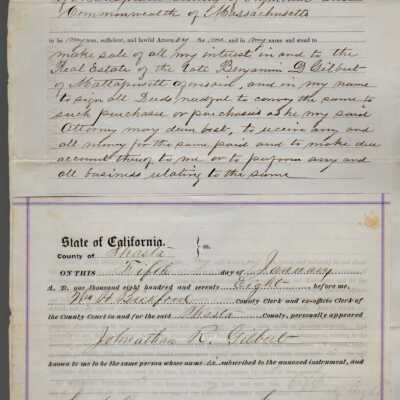 Commonwealth of Massachusetts
to be my true, sufficient, and lawful Attorney for me and in my name and stead to
make sale of all my interest in and to the
Real Estate of the late Benjamin D Gilbut
of Mattapoisett aforesaid, and in my name
to sign all Deeds needful to convey the same to
such purchaser or purchasers as he my said
Attorney may deem best, to receive any and
all money for the same paid and to make due
account thereof to me or to perform any and
all business relating to the same
State of California.
County of Shasta ss.
ON THIS Fifth day of January
A. D. one thousand eight hundred and seventy Eight before me,
Wm H Bickford County Clerk and ex-officio Clerk of
the County Court in and for the said Shasta County, personally appeared
Johnathan R. Gilbut
known to me to be the same person whose name is subscribed to the annexed instrument, and